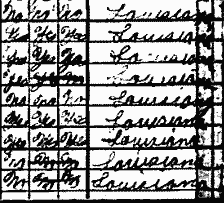 No No No Louisiana
Yes Yes Yes Louisiana
Yes Yes Yes Louisiana
Yes Louisiana
No No No Louisiana
Yes Yes Yes Louisiana
Yes Yes Yes Louisiana
No Louisiana
No Louisiana